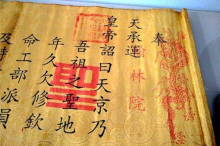 奉
天承運
皇帝詔曰天京乃
吾祖之聖地
年久欠修欽
命工部派員
聖
林院